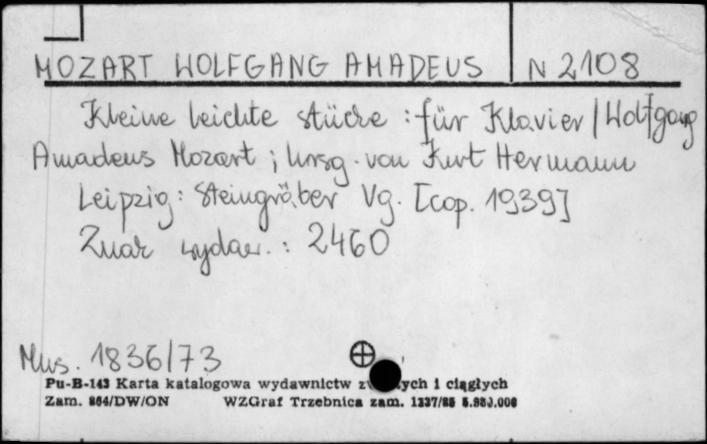 MOZART WOLFGANG AMADEUS N 2108
Kleine leichte Stücke : für Klavier / Wolfgang
Amadeus Mozart ; hrsg. von Kurt Hermann
Leipzig : Steingräber Vg. [cop. 1939]
Znak wydaw. : 2460
Mus. 1836/73
Pu-B-143 Karta katalogowa wydawnictw ych i ciągłych
Zam. 864/DW/ON WZGraf Trzebnica zam. 1337/85